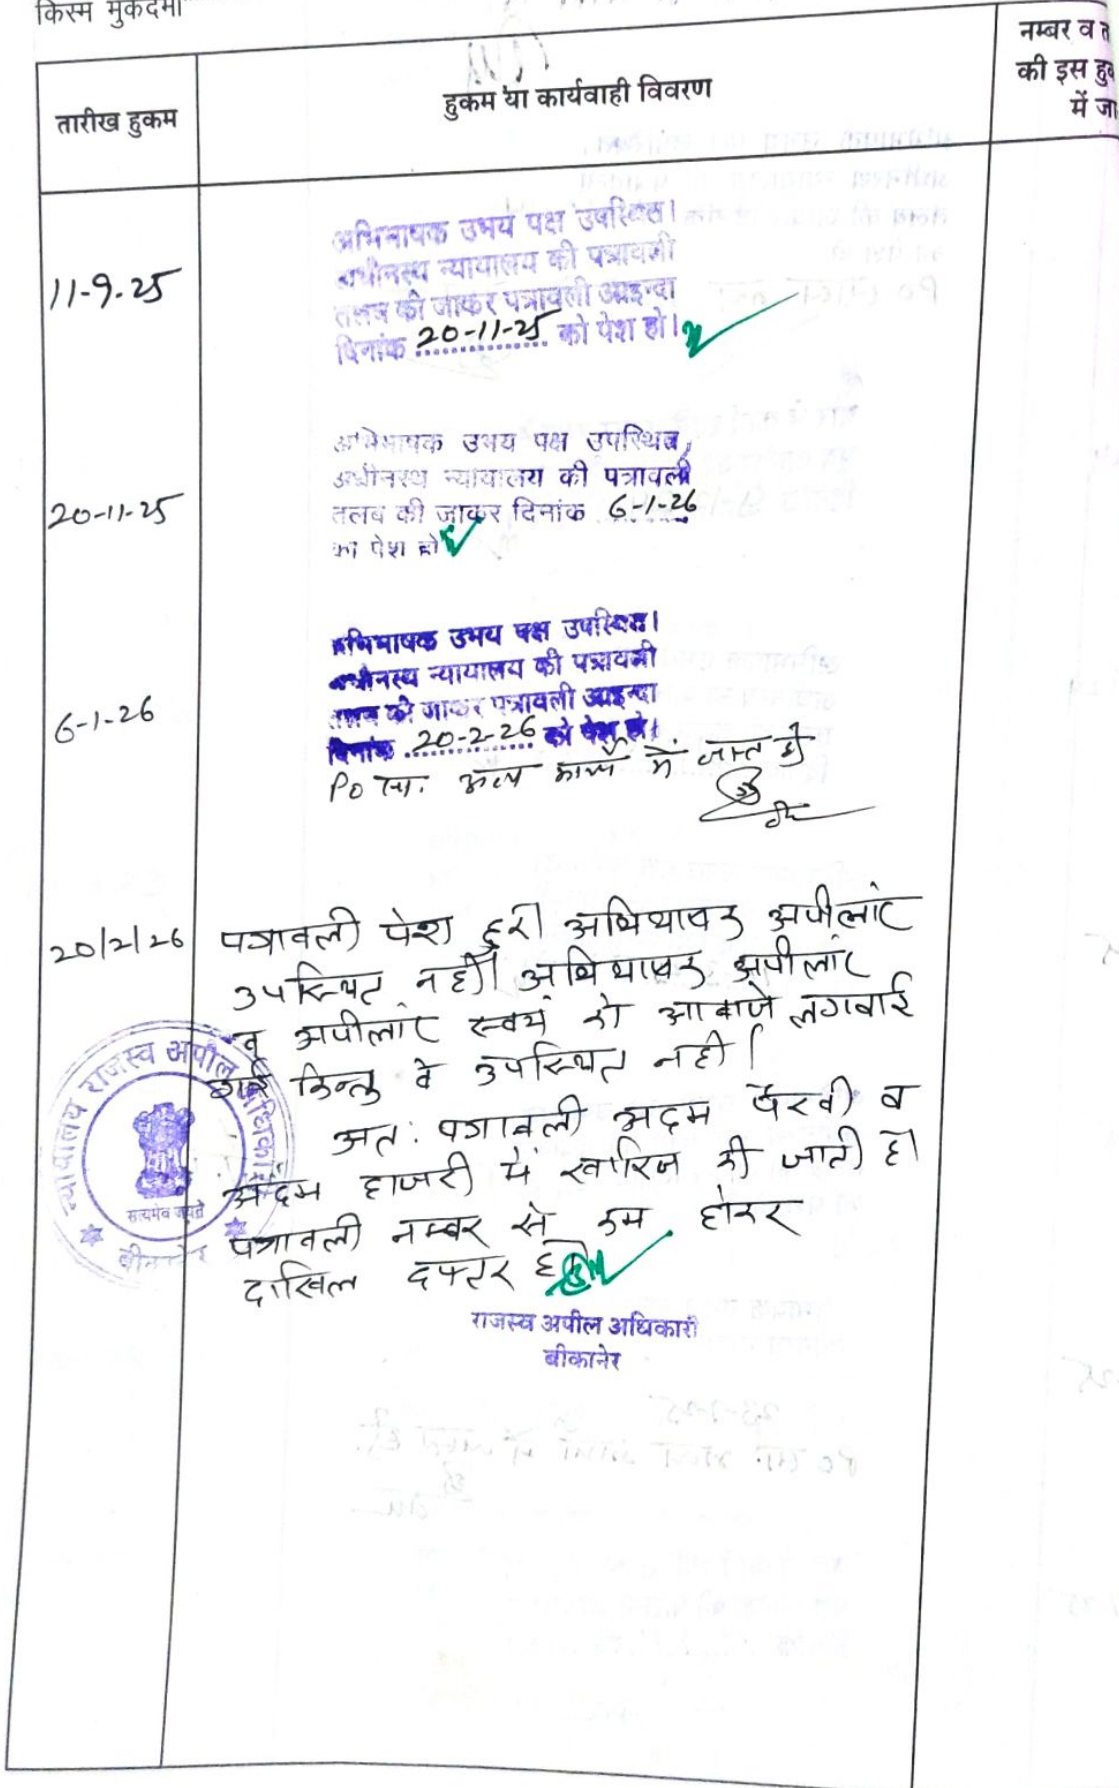 किस्म मुकदमा
तारीख हुकम
हुकम या कार्यवाही विवरण
नम्बर व त
की इस हु
में जा
11-9-25
अभिभाषक उभय पक्ष उपस्थित।
अधीनस्थ न्यायालय की पत्रावली
तलब की जाकर पत्रावली आइन्दा
दिनांक 20-11-25 को पेश हो।
20-11-25
अभिभाषक उभय पक्ष उपस्थित,
अधीनस्थ न्यायालय की पत्रावली
तलब की जाकर दिनांक 6-1-26
का पेश हो
6-1-26
अभिभाषक उभय पक्ष उपस्थित।
अधीनस्थ न्यायालय की पत्रावली
तलब की जाकर पत्रावली आइन्दा
दिनांक 20-2-26 को पेश हो।
PO सा. अन्य कार्य में व्यस्त है
20/2/26
पत्रावली पेश हुई। अभिभाषक अपीलांट
उपस्थित नहीं। अभिभाषक अपीलांट
व अपीलांट स्वयं को आवाजे लगवाई
गई किन्तु वे उपस्थित नही।
अत: पत्रावली अदम पैरवी व
अदम हाजरी में खारिज की जाती है।
पत्रावली नम्बर से कम होकर
दाखिल दफ्तर हो
न्यायालय राजस्व अपील अधिकारी
सत्यमेव जयते
बीकानेर
राजस्व अपील अधिकारी
बीकानेर